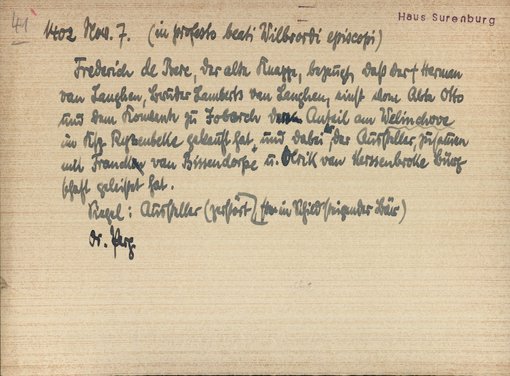 41
Haus Surenburg
1402 Nov. 7. (in profesto beati Wilbrordi episcopi)
Frederich de Bere, der alte Knappe, bezeugt, daß der † Herman
van Langhen, Bruder Lamberts van Langhen, einst vom Abte Otto
und dem Konvente zu Yborch den Anteil am Welinchove
im Ksp. Ryssenbeke gekauft hat, und dabei der Aussteller, zusammen
mit Francken van Bissendorpe u. Olrik van Herssenbroke Bürg-
schaft geleistet hat.
Siegel: Aussteller (zerstört) im Schild steigender Bär)
Or. Perg.